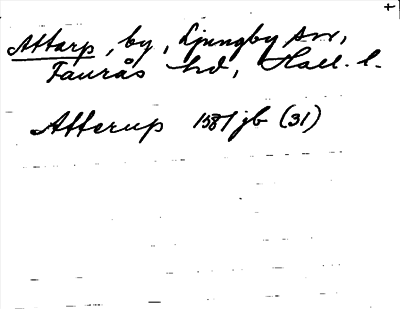 +
Attarp, by, Ljungby sn,
Faurås hd, Hall. l.
Atterup 1581 jb (31)